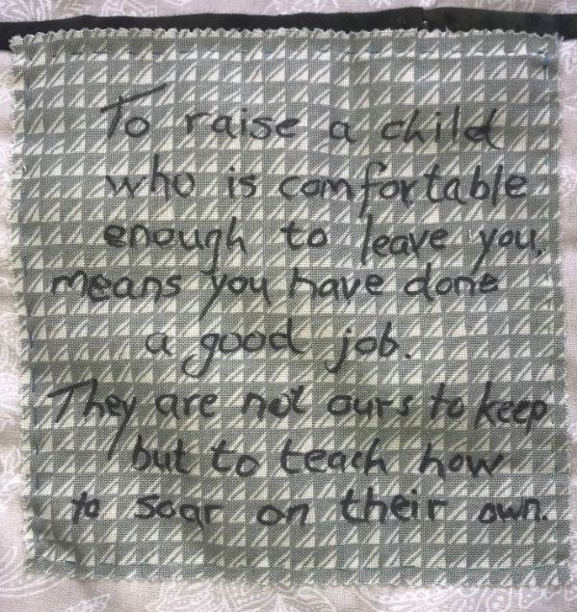 To raise a child
who is comfortable
enough to leave you,
means you have done
a good job.
They are not ours to keep
but to teach how
to soar on their own.